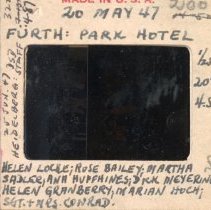 MADE IN U.S.A.
20 MAY 47
FÜRTH: PARK HOTEL
HEIDELBERG: STAFF
HELEN LOCKE; ROSE BAILEY; MARTHA
SADLER; ANN HUFFHINES; DICK MEYERING
HELEN GRANBERRY; MARIAN HOCH;
SGT. & MRS. CONRAD.